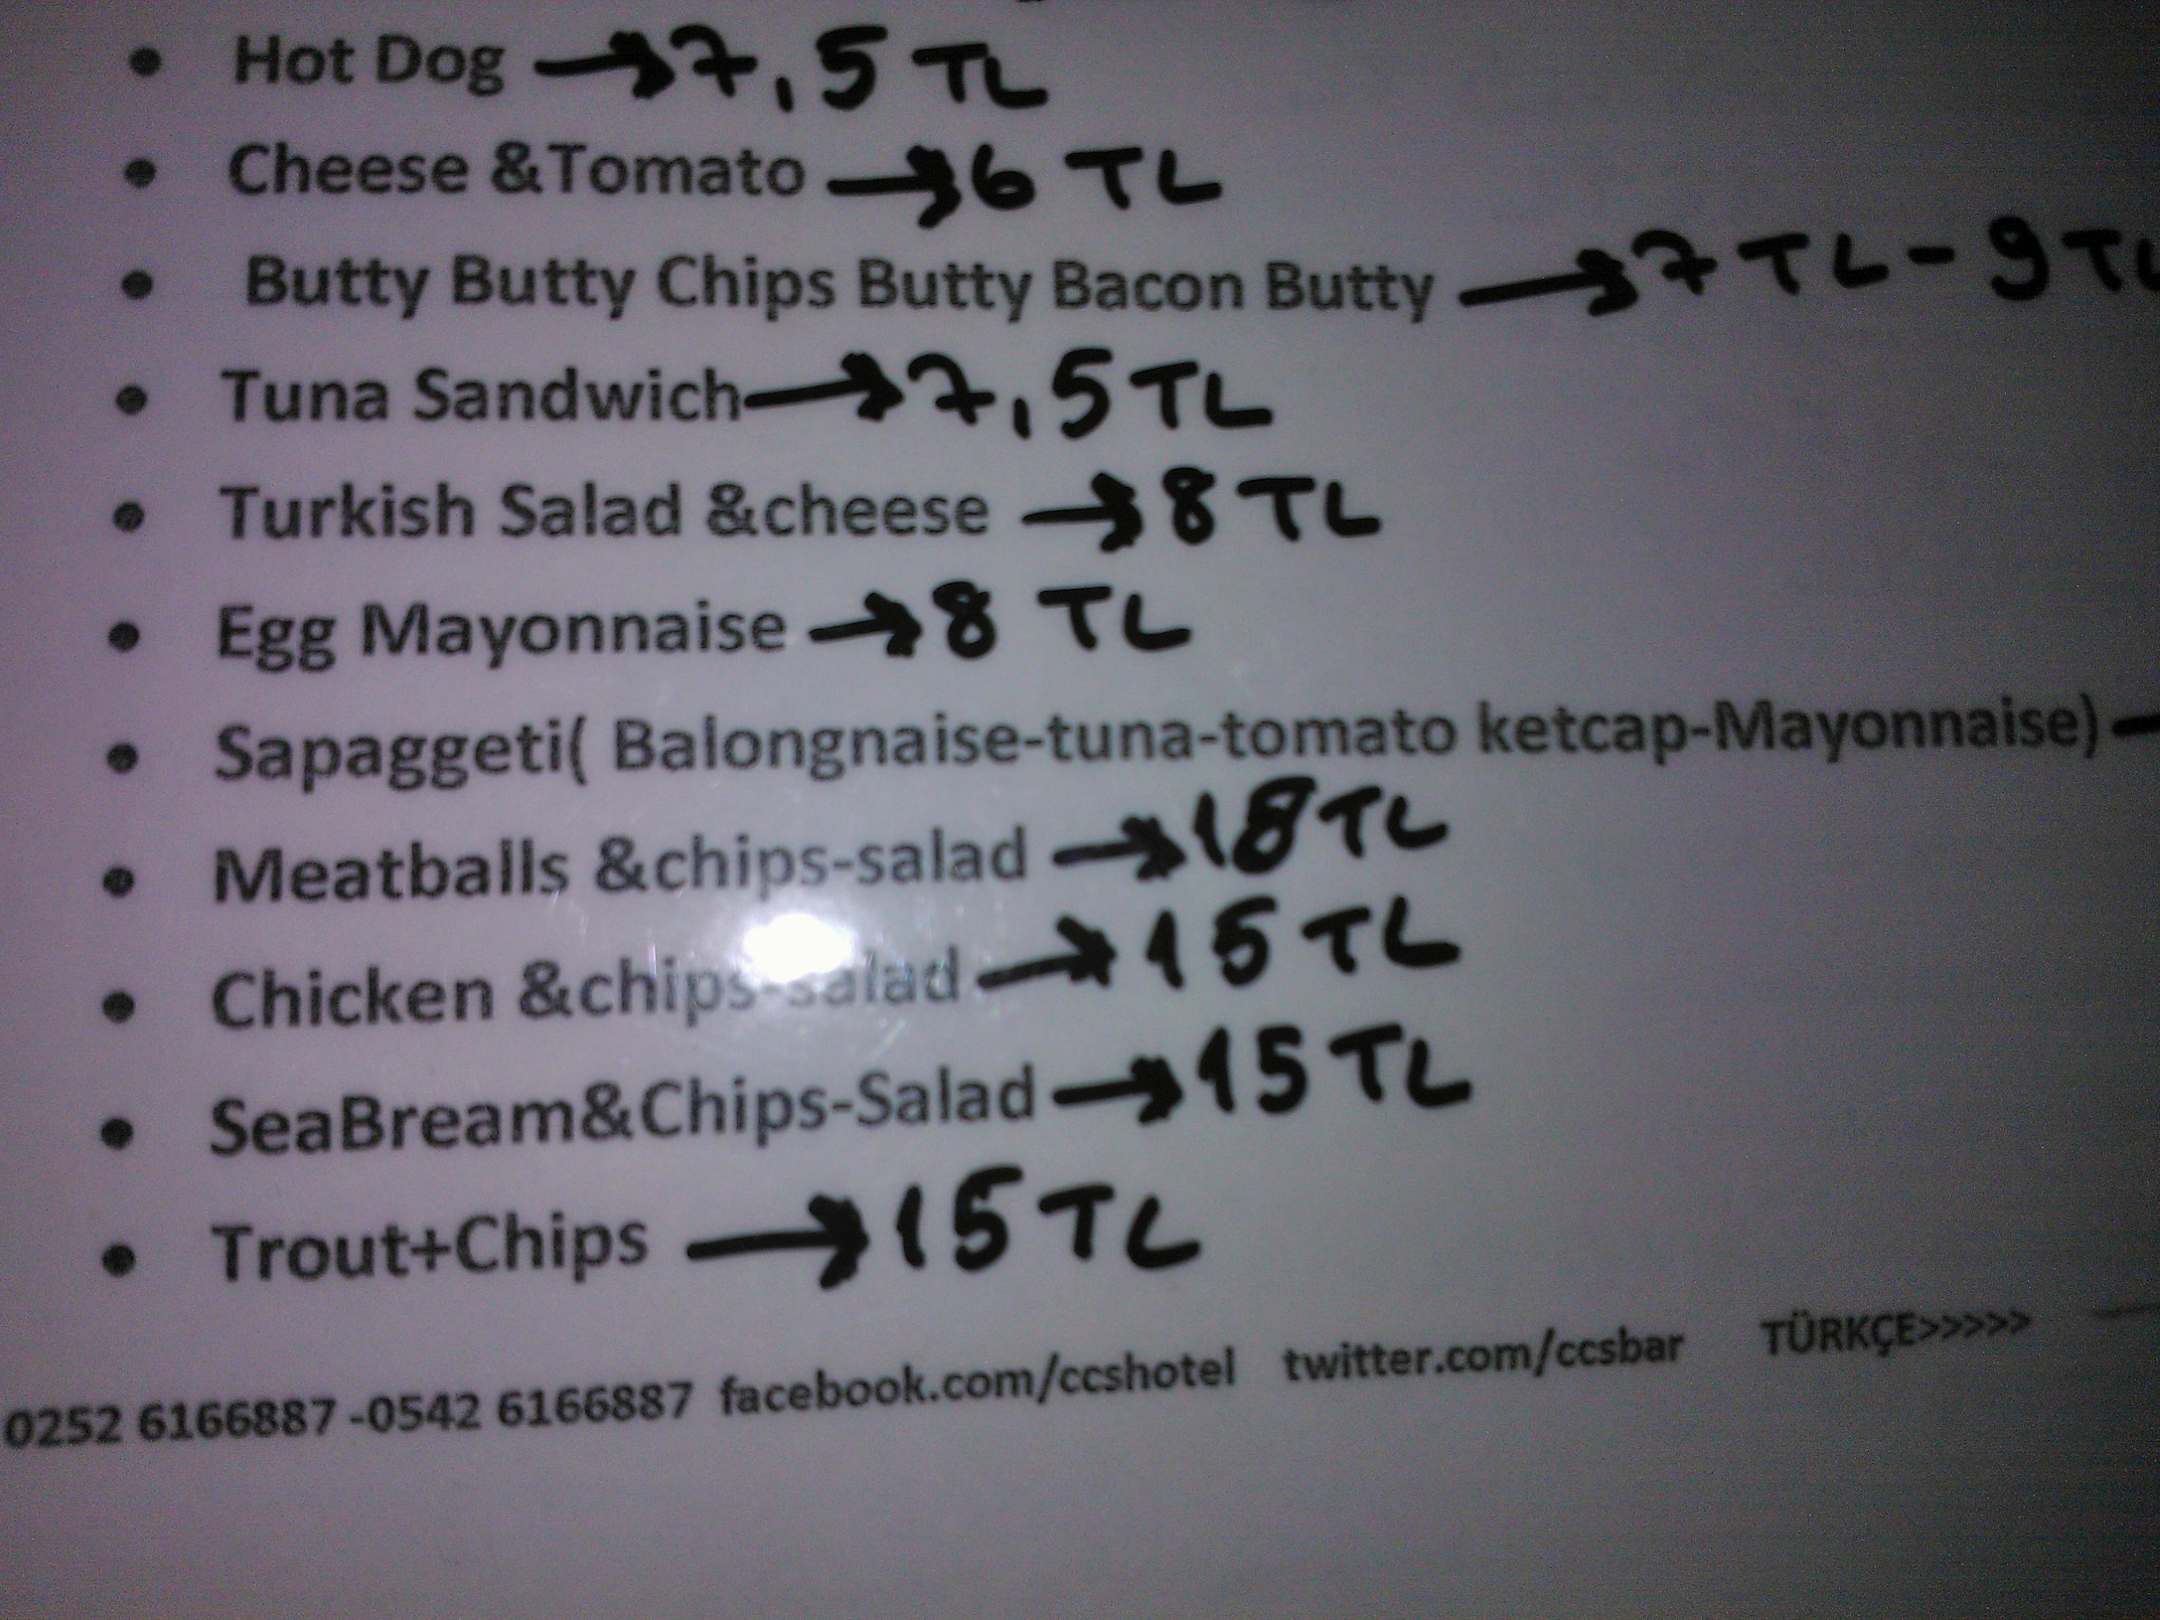 Hot Dog →7,5 TL
Cheese &Tomato →6 TL
Butty Butty Chips Butty Bacon Butty →7 TL-9 TL
Tuna Sandwich→7,5 TL
Turkish Salad &cheese →8 TL
Egg Mayonnaise →8 TL
Sapaggeti( Balongnaise-tuna-tomato ketcap-Mayonnaise)
Meatballs &chips-salad →18 TL
Chicken &chips-salad →15 TL
SeaBream&Chips-Salad →15 TL
Trout+Chips →15 TL
0252 6166887 -0542 6166887 facebook.com/ccshotel twitter.com/ccsbar TÜRKÇE>>>>>